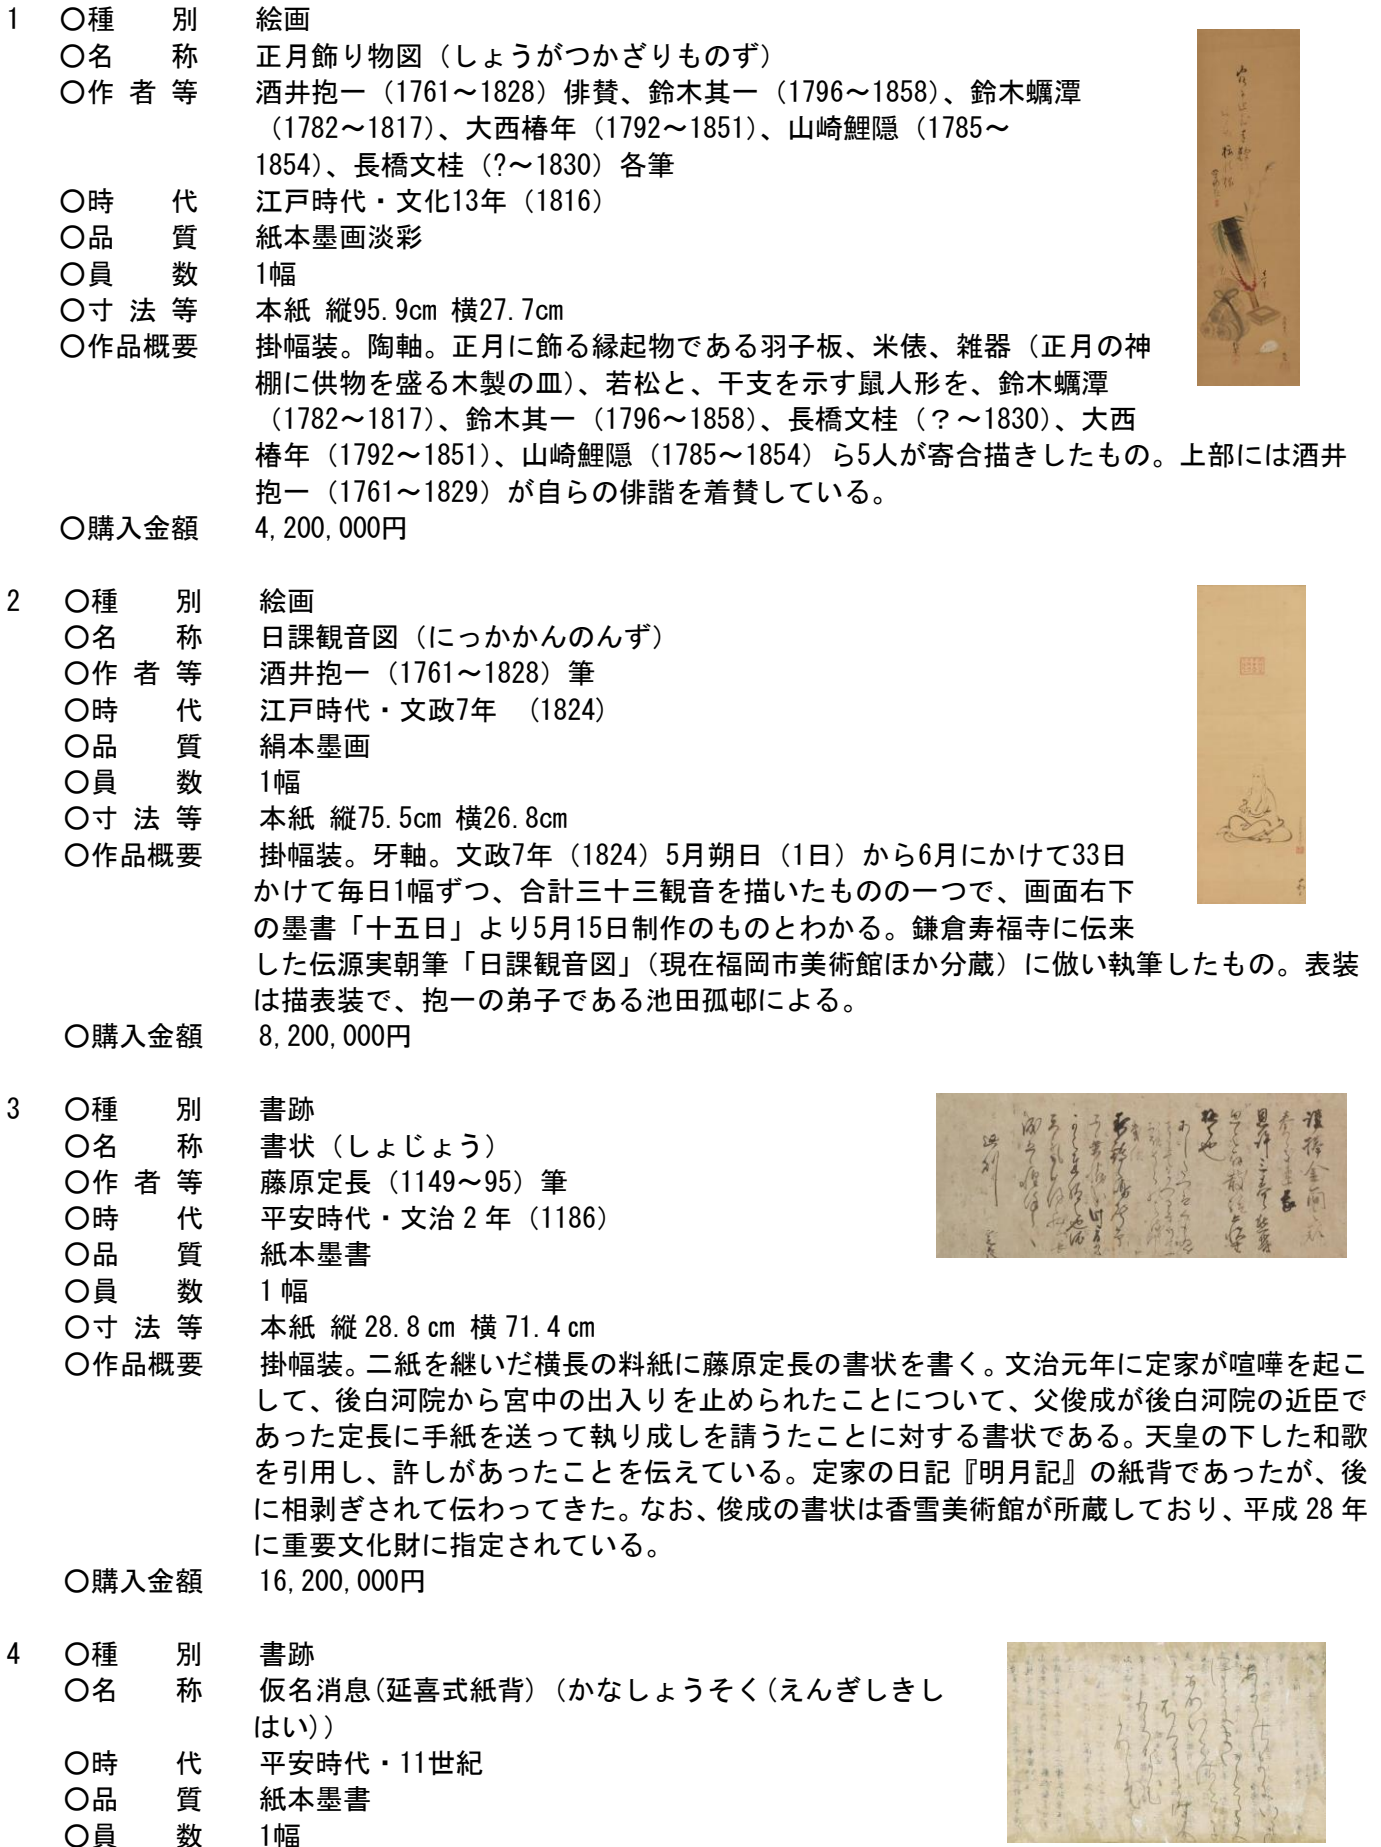 1 〇種 別 絵画
〇名 称 正月飾り物図（しょうがつかざりものず）
〇作 者 等 酒井抱一（1761～1828）俳賛、鈴木其一（1796～1858）、鈴木蠣潭
（1782～1817）、大西椿年（1792～1851）、山崎鯉隠（1785～
1854）、長橋文桂（?～1830）各筆
〇時 代 江戸時代・文化13年（1816）
〇品 質 紙本墨画淡彩
〇員 数 1幅
〇寸 法 等 本紙 縦95.9cm 横27.7cm
〇作品概要 掛幅装。陶軸。正月に飾る縁起物である羽子板、米俵、雑器（正月の神
棚に供物を盛る木製の皿）、若松と、干支を示す鼠人形を、鈴木蠣潭
（1782～1817）、鈴木其一（1796～1858）、長橋文桂（？～1830）、大西
椿年（1792～1851）、山崎鯉隠（1785～1854）ら5人が寄合描きしたもの。上部には酒井
抱一（1761～1829）が自らの俳諧を着賛している。
〇購入金額 4,200,000円
2 〇種 別 絵画
〇名 称 日課観音図（にっかかんのんず）
〇作 者 等 酒井抱一（1761～1828）筆
〇時 代 江戸時代・文政7年 （1824）
〇品 質 絹本墨画
〇員 数 1幅
〇寸 法 等 本紙 縦75.5cm 横26.8cm
〇作品概要 掛幅装。牙軸。文政7年（1824）5月朔日（1日）から6月にかけて33日
かけて毎日1幅ずつ、合計三十三観音を描いたものの一つで、画面右下
の墨書「十五日」より5月15日制作のものとわかる。鎌倉寿福寺に伝来
した伝源実朝筆「日課観音図」（現在福岡市美術館ほか分蔵）に倣い執筆したもの。表装
は描表装で、抱一の弟子である池田孤邨による。
〇購入金額 8,200,000円
3 〇種 別 書跡
〇名 称 書状（しょじょう）
〇作 者 等 藤原定長（1149～95）筆
〇時 代 平安時代・文治２年（1186）
〇品 質 紙本墨書
〇員 数 1幅
〇寸 法 等 本紙 縦28.8㎝ 横71.4㎝
〇作品概要 掛幅装。二紙を継いだ横長の料紙に藤原定長の書状を書く。文治元年に定家が喧嘩を起こ
して、後白河院から宮中の出入りを止められたことについて、父俊成が後白河院の近臣で
あった定長に手紙を送って執り成しを請うたことに対する書状である。天皇の下した和歌
を引用し、許しがあったことを伝えている。定家の日記『明月記』の紙背であったが、後
に相剥ぎされて伝わってきた。なお、俊成の書状は香雪美術館が所蔵しており、平成28年
に重要文化財に指定されている。
〇購入金額 16,200,000円
4 〇種 別 書跡
〇名 称 仮名消息(延喜式紙背)（かなしょうそく(えんぎしきし
はい)）
〇時 代 平安時代・11世紀
〇品 質 紙本墨書
〇員 数 1幅